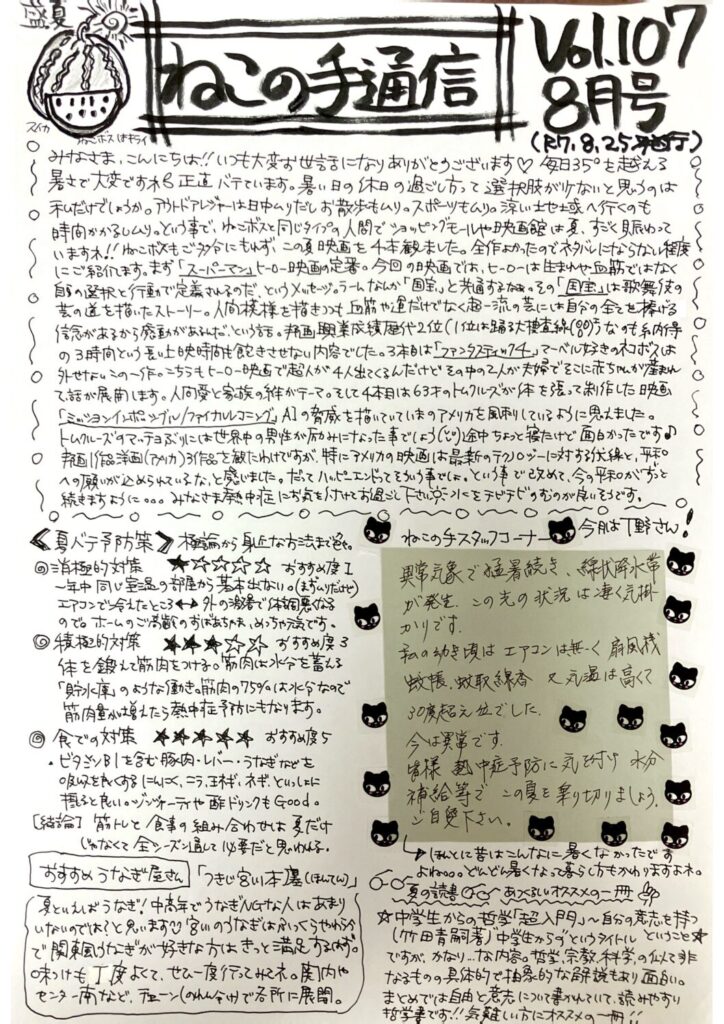 盛夏
ねこの手通信
Vol.107
8月号
(R7.8.25発行)
スイカ
ねこボスはキライ
みなさま、こんにちは!!いつも大変お世話になりありがとうございます♡ 毎日35°を越える
暑さで大変ですね 正直バテています。暑い日の休日の過ごし方って選択肢が少ないと思うのは
私だけでしょうか。アウトドアレジャーは日中ムリだしお散歩もムリ。スポーツもムリ。涼しい土地へ行くのも
時間かかるしムリ。という事で、ねこボスと同じタイプの人間でショッピングモールや映画館は夏、すごく賑わって
いますね!!ねこボスもご多分にもれず、この夏映画を4本観ました。全作よかったのでネタバレにならない程度
にご紹介します。まず「スーパーマン」ヒーロー映画の定番。今回の映画では、ヒーローは生まれや血筋ではなく
自身の選択と行動で定義されるのだ、というメッセージ。ラームなんか「国宝」と共通するなぁ。その「国宝」は歌舞伎の
芸の道を描いたストーリー。人間模様を描きつつも血筋や運だけでなく超一流の芸には自分の全てを捧げる
信念があるから感動があるんだ、という話。邦画興業成績歴代2位(1位は踊る大捜査線(80))なのも納得
の3時間という長い上映時間も飽きさせない内容でした。3本目は「ファンタスティック4」マーベル好きのネコボスは
外せないこの一作。こちらもヒーロー映画で超人が4人出てくるんだけどその中の2人が夫婦でそこに赤ちゃんが産まれ
て話が展開します。人間愛と家族の絆がテーマ。そして4本目は63才のトムクルーズが体を張って制作した映画
「ミッションインポッシブル/ファイナルレコニング」AIの脅威を描いていていまのアメリカを風刺しているように思えました。
トムクルーズのマッチョぶりには世界中の男性が励みになった事でしょう(じじい)途中ちょっと寝たけど面白かったです♪
邦画1作品洋画(アメリカ)3作品を観たわけですが、特にアメリカの映画は最新のテクノロジーに対する伏線と、平和
への願いが込められているな、と感じました。だってハッピーエンドってそういう事でしょ。という事で改めて、今の平和がずっと
続きますように。。。みなさま熱中症にお気を付けてお過ごし下さい。水をチビチビのむのが良いそうです。
《夏バテ予防策》極論から身近な方法まで色々。
◎消極的対策 ★☆☆☆☆ おすすめ度1
〜年中同じ室温の部屋から基本出ない。(まずムリだけど)
エアコンで冷えたところ↔外の猛暑で体調悪くなる
のでホームのご高齢のおばあちゃま、めっちゃ元気です。
◎積極的対策 ★★★☆☆ おすすめ度3
体を鍛えて筋肉をつける。筋肉は水分を蓄える
「貯水庫」のような働き。筋肉の75%は水分なので
筋肉量が増えたら熱中症予防にもなります。
◎食での対策 ★★★★★ おすすめ度5
・ビタミンB1を含む豚肉・レバー・うなぎなどを
吸収を良くするにんにく、ニラ、玉ネギ、ネギ、といっしょに
摂ると良い。ジンジャーティや酢ドリンクもGood。
[結論] 筋トレと食事の組み合わせは夏だけ
じゃなくて全シーズン通して必要だと思われる。
おすすめうなぎ屋さん 「つきじ宮川本廛(ほんてん)」
夏といえばうなぎ!中高年でうなぎNGな人はあまり
いないのでは?と思います♡宮川のうなぎはふっくらやわらか
で関東風うなぎが好きな方はきっと満足するはず。
味つけも丁度よくて、ぜひ一度行ってみてネ。関内や
センター南など、チェーン(のれん分け)で各所に展開。
ねこの手スタッフコーナー
今月は丁野さん!
異常気象で猛暑続き、線状降水帯
が発生、この先の状況は凄く気掛
かりです。
私の幼き頃はエアコンは無く扇風機
蚊帳、蚊取線香 又気温は高くて
30度超え位でした。
今は異常です。
皆様 熱中症予防に気を付け 水分
補給等で この夏を乗り切りましょう。
ご自愛下さい。
↳ほんとに昔はこんなに暑くなかったです
よね。。。どんどん暑くなって暮らし方もかわりますよネ。
夏の読書 あつくるしいオススメの一冊
☆中学生からの哲学「超入門」〜自分の意志を持つ
ということ☆
(竹田青嗣著)"中学生からの"というタイトル
ですが、かなり…な内容。哲学、宗教、科学の似て非
なるものの具体的で抽象的な解説もあり面白い。
まとめでは自由と意志について書かれていて、読みやすい
哲学書です!!気難しい方にオススメの一冊!!